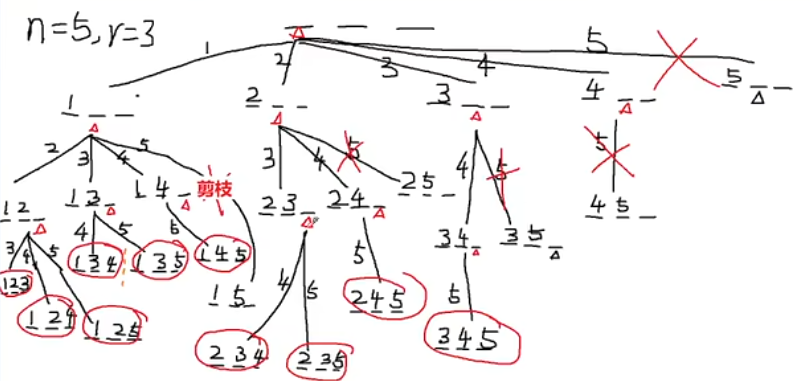 n=5,r=3
1 2 3 4 5
1 _ _ 2 _ _ 3 _ _ 4 _ _ 5 _ _
2 3 4 5 3 4 5 4 5 5
1 2 _ 1 3 _ 1 4 _ 剪枝 1 5 _ 2 3 _ 2 4 _ 2 5 _ 3 4 _ 3 5 _ 4 5 _
3 4 5 4 5 5 4 5 5 5
123 124 125 134 135 145 234 235 245 345